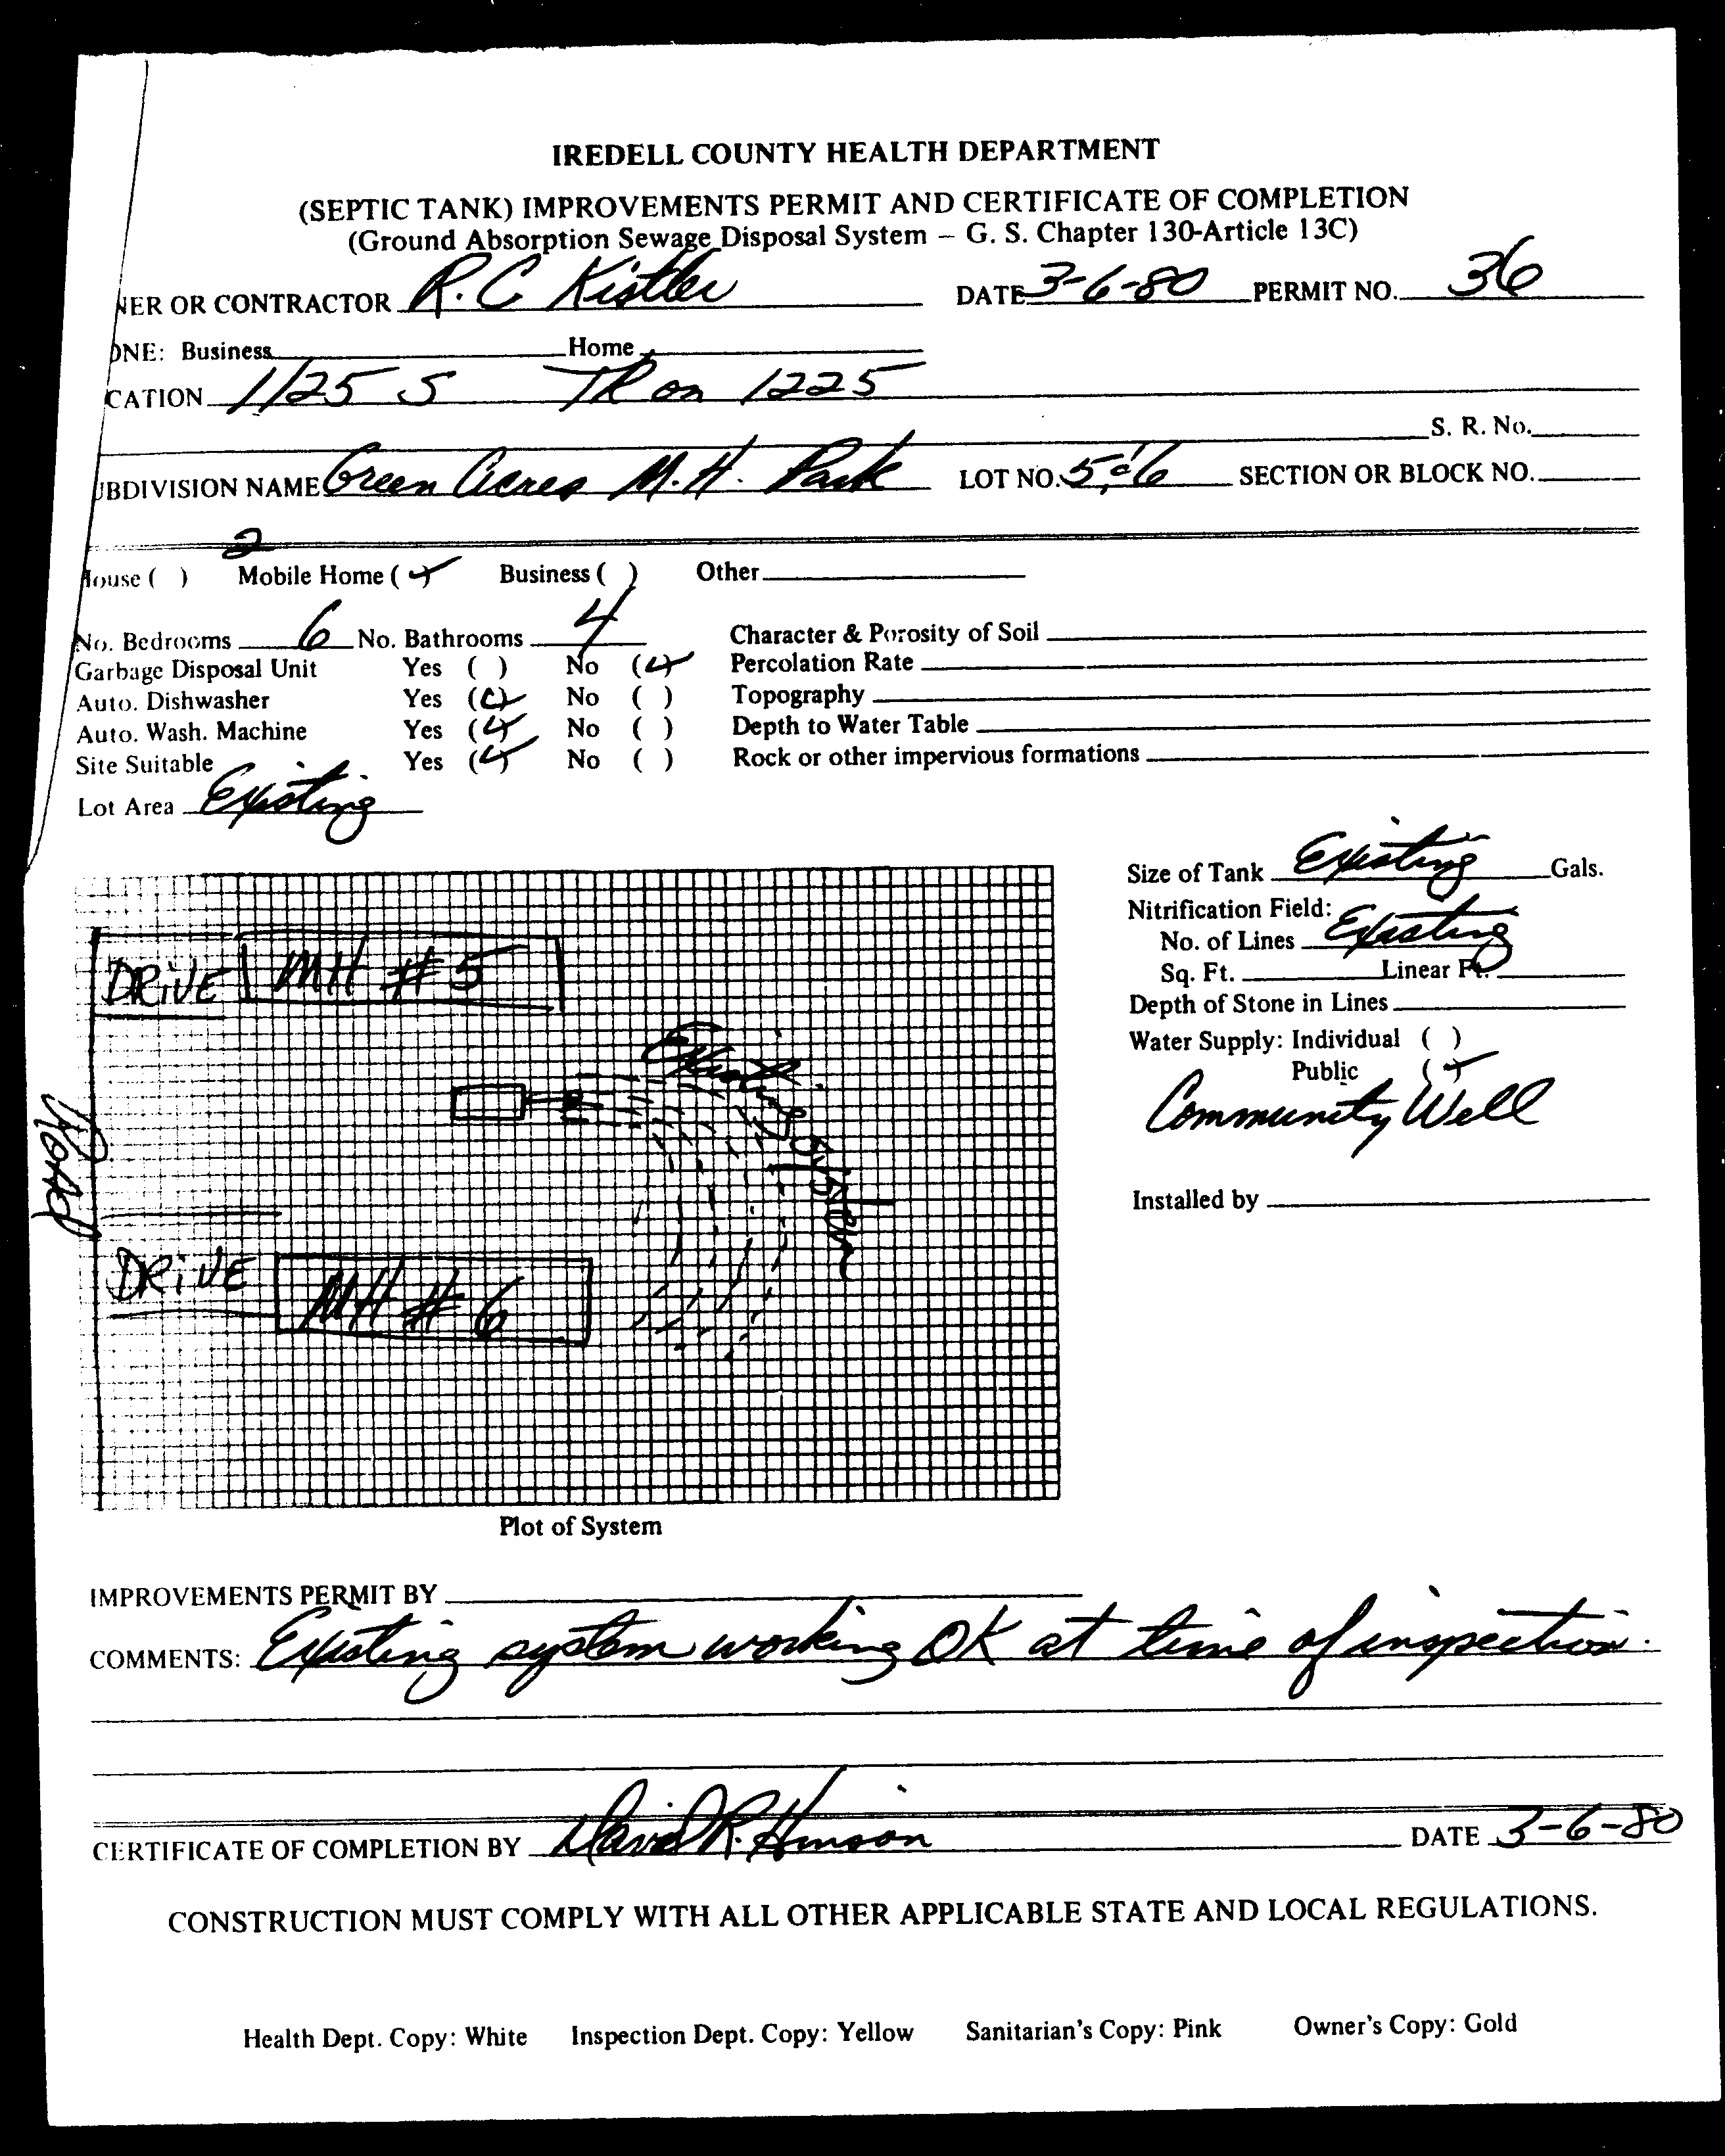 IREDELL COUNTY HEALTH DEPARTMENT
(SEPTIC TANK) IMPROVEMENTS PERMIT AND CERTIFICATE OF COMPLETION
(Ground Absorption Sewage Disposal System – G. S. Chapter 130-Article 13C)
NER OR CONTRACTOR R. C Kistler DATE 3-6-80 PERMIT NO. 36
ONE: Business Home
CATION 1125 S TR on 1225
S. R. No.
UBDIVISION NAME Green Acres M. H. Park LOT NO. 5 & 6 SECTION OR BLOCK NO.
2
House ( ) Mobile Home (✓) Business ( ) Other
No. Bedrooms 6 No. Bathrooms 4 Character & Porosity of Soil
Garbage Disposal Unit Yes ( ) No (✓) Percolation Rate
Auto. Dishwasher Yes (✓) No ( ) Topography
Auto. Wash. Machine Yes (✓) No ( ) Depth to Water Table
Site Suitable Yes (✓) No ( ) Rock or other impervious formations
Lot Area Existing
Size of Tank Existing Gals.
Nitrification Field:
No. of Lines Existing
Sq. Ft. Linear Ft.
Depth of Stone in Lines
Water Supply: Individual ( )
Public (✓)
Community Well
Installed by
DRIVE MH # 5
Existing System
Road
DRIVE MH # 6
Plot of System
IMPROVEMENTS PERMIT BY
COMMENTS: Existing system working OK at time of inspection.
CERTIFICATE OF COMPLETION BY David R. Hinson DATE 3-6-80
CONSTRUCTION MUST COMPLY WITH ALL OTHER APPLICABLE STATE AND LOCAL REGULATIONS.
Health Dept. Copy: White Inspection Dept. Copy: Yellow Sanitarian's Copy: Pink Owner's Copy: Gold